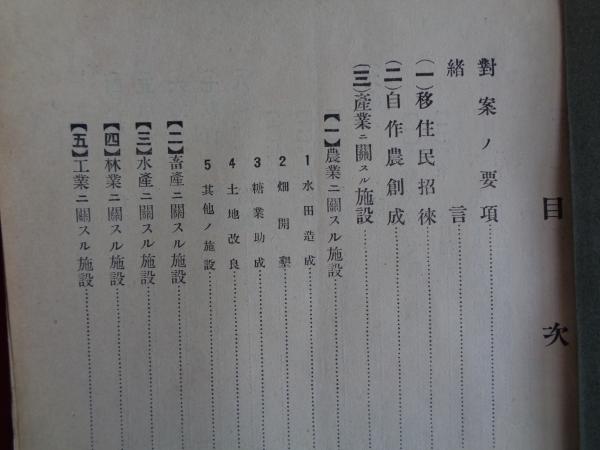 目次
緒言
對案ノ要項
(一)移住民招徠
(二)自作農創成
(三)產業ニ關スル施設
【一】農業ニ關スル施設
1 水田造成
2 畑開墾
3 糖業助成
4 土地改良
5 其他ノ施設
【二】畜產ニ關スル施設
【三】水產ニ關スル施設
【四】林業ニ關スル施設
【五】工業ニ關スル施設